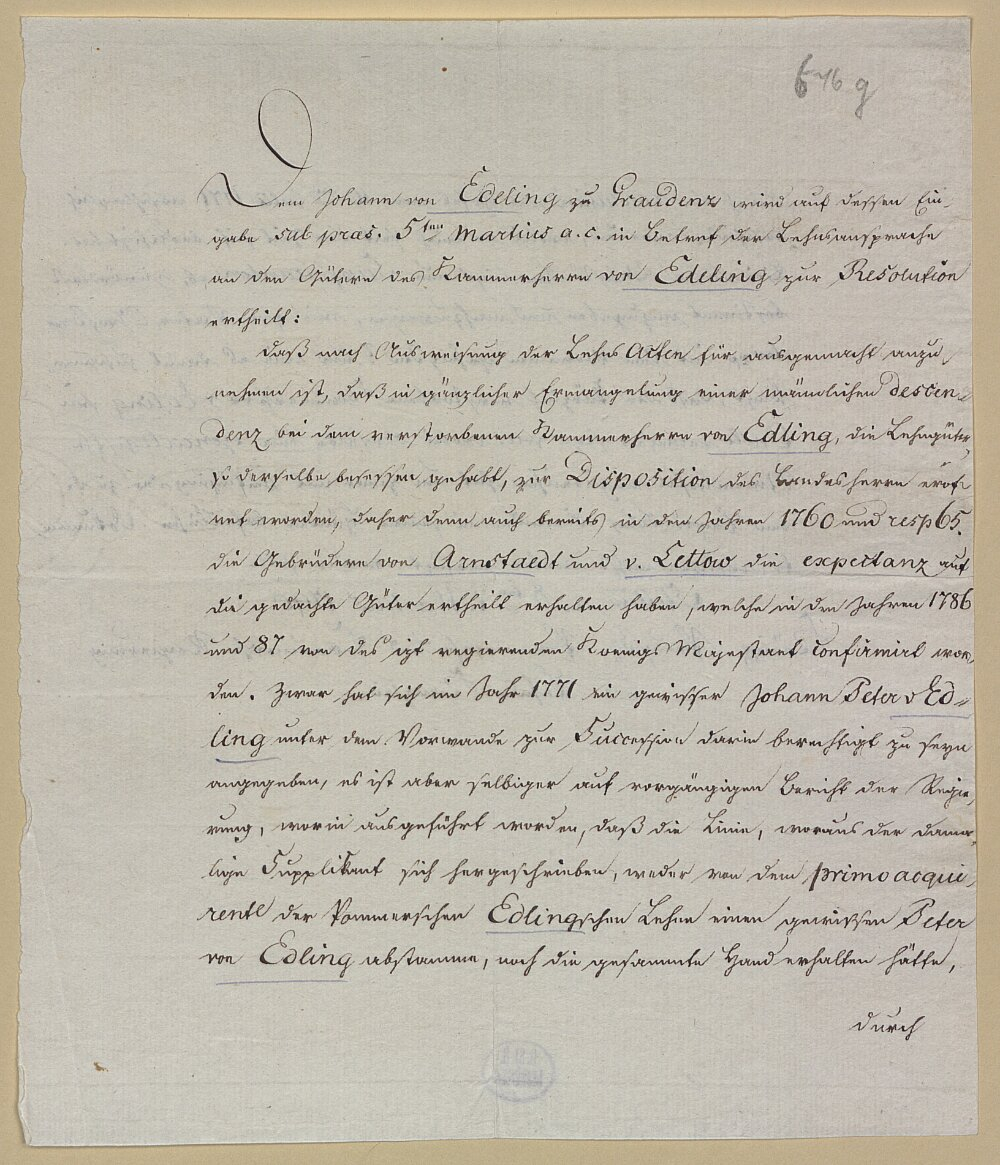 676 g
Dem Johann von Edeling zu Graudenz wird auf dessen Ein-
gabe sub præs. 5ten Martius a. c. in Betref der Lehnsansprache
an den Gütern des Kammerherrn von Edeling zur Resolution
ertheilt:
daß nach Ausweisung der Lehns Acten für ausgemacht anzu-
nehmen ist, daß in gänzlicher Ermangelung einer männlichen descen-
denz bei dem verstorbenen Kammerherrn von Edling, die Lehngüter,
so derselbe besessen gehabt, zur Disposition des Landesherrn eröf-
net worden, daher denn auch bereits in den Jahren 1760 und resp 65.
die Gebrüdere von Arnstaedt und v. Lettow die expectanz auf
die gedachte Güter ertheilt erhalten haben, welche in den Jahren 1786
und 87 von des izt regierenden Koenigs Majestaet confirmirt wor-
den. Zwar hat sich im Jahr 1771 ein gewisser Johann Peter v Ed-
ling unter dem Vorwande zur Succession darin berechtigt zu seyn
angegeben, es ist aber selbiger auf vorgängigen Bericht der Regie-
rung, worin ausgeführt worden, daß die Linie, woraus der dama-
lige Supplikant sich hergeschrieben, weder von dem primo acqui-
rente der Pommerschen Edlingschen Lehne einen gewissen Peter
von Edling abstamme, noch die gesammte Hand erhalten hätte,
durch